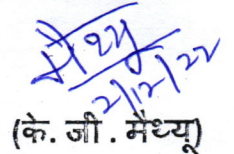 मैथ्यू
2/12/22
(के. जी. मैथ्यू)